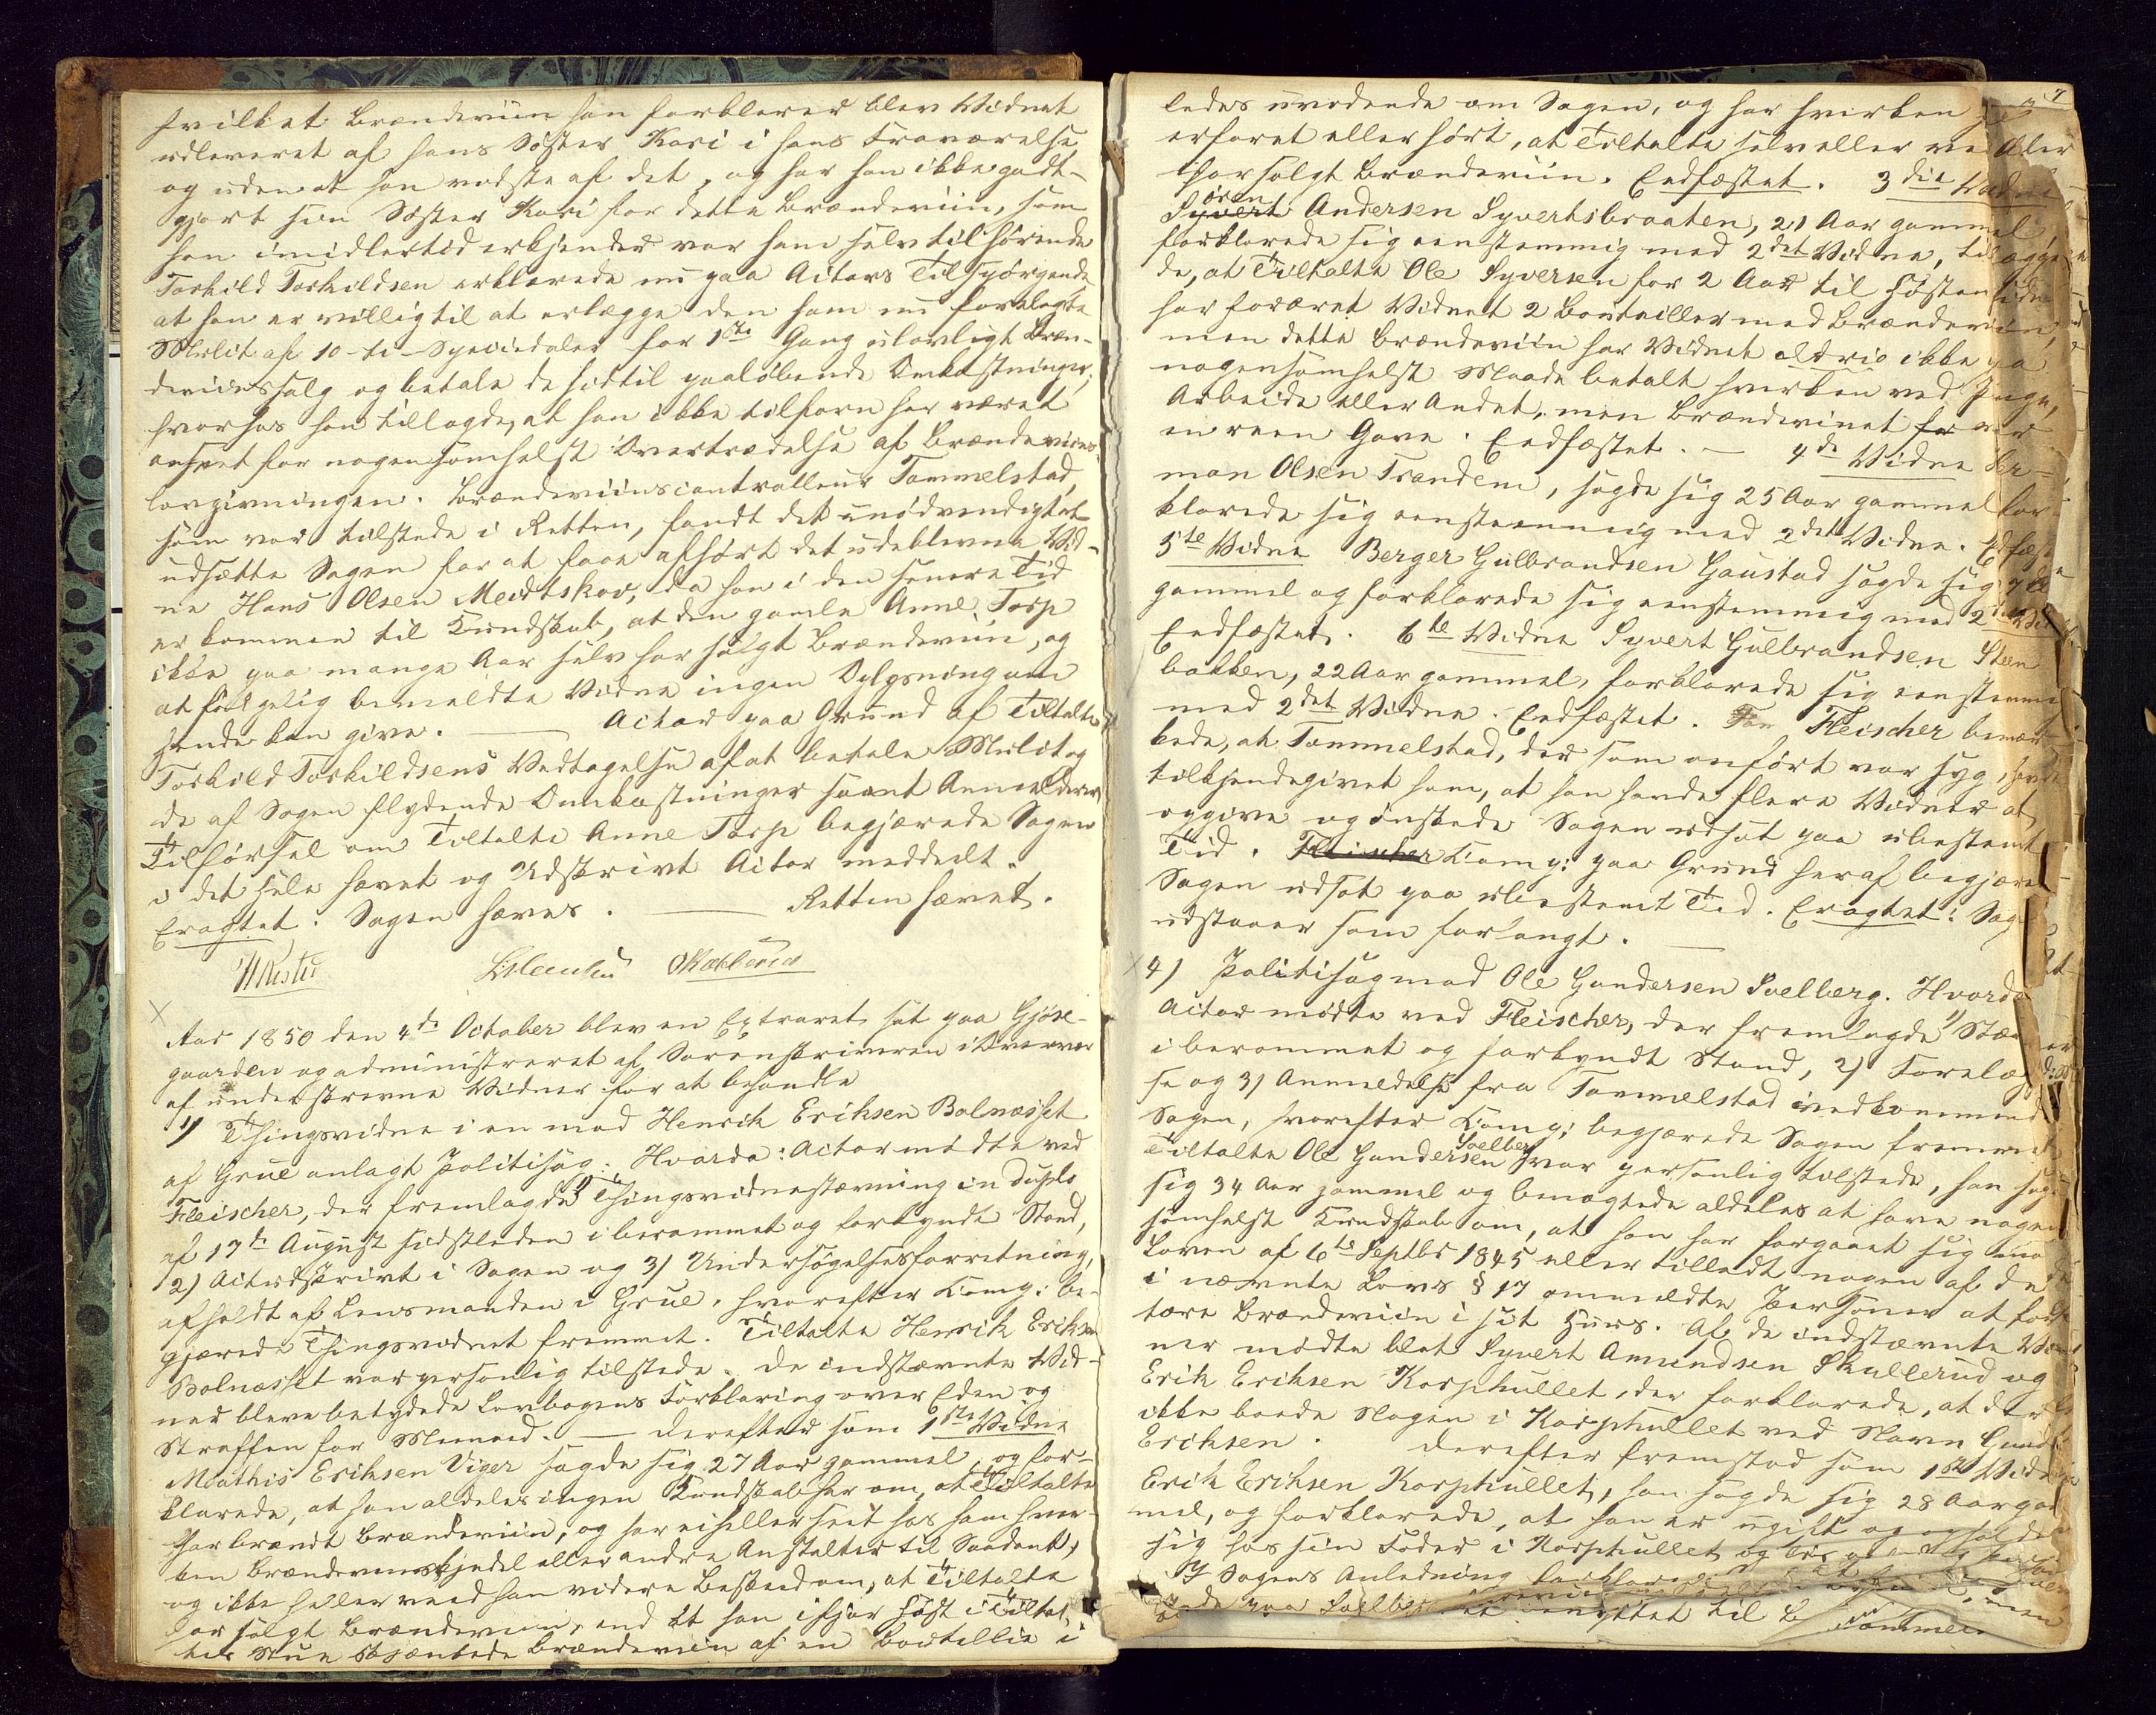 hvilket Brændeviin han forklarer blev Vidnet
udleveret af hans Søster Kari i hans Fraværelse
og uden at han vidste af det, og har han ikke godt-
gjort sin Søster Kari for dette Brændeviin, som
han imidlertid erkjender var ham selv tilhørende
Torkild Torkildsen erklærede nu paa Actors Tilspørgende
at han er villig til at erlægge den ham nu forelagte
Mulct af 10 -ti- Speciedaler for 1ste Gang ulovligt Bræn-
deviinssalg og betale de hidtil paaløbende Omkostninger,
hvorhos han tillagde, at han ikke tilforn har været
anseet for nogensomhelst Overtrædelse af Brændeviins-
lovgivningen. Brændeviinscontrolleur Tommelstad,
som var tilstede i Retten, fandt det unødvendigt at
udsætte Sagen for at faae afhørt det udeblevne Vid-
ne Hans Olsen Meidtskov, da han i den senere Tid
er kommen til Kundskab, at den gamle Anne Torp
ikke paa mange Aar selv har solgt Brændeviin, og
at følgelig bemeldte Vidne ingen Oplysning om
hende kan give. — Actor paa Grund af Tiltalte
Torkild Torkildsens Vedtagelse af at betale Mulct og
de af Sagen flydende Omkostninger samt Anmelderens
Tilførsel om Tiltalte Anne Torp begjærede Sagen
i det hele hævet og Udskrivt Actor meddeelt.
Eragtet: Sagen hæves. — Retten hævet.
Aar 1850 den 4de October blev en Extraret sat paa Gjøse-
gaarden og administreret af Sorenskriveren i Overvær
af underskrevne Vidner for at behandle
1) Thingsvidne i en mod Henrik Eriksen Bolnæsset
af Grue anlagt Politisag: Hvorda: Actor mødte ved
Fleischer, der fremlagde 1) Thingsvidnestævning in duplo
af 17de August sidstleden i berammet og forkyndt Stand,
2) Actudskrivt i Sagen og 3) Undersøgelsesforretning,
afholdt af Lensmanden i Grue, hvorefter Comp: be-
gjærede Thingsvidnet fremmet. Tiltalte Henrik Eriksen
Bolnæsset var personlig tilstede. De indstævnte Vid-
ner bleve betydede Lovbogens Forklaring over Eden og
Straffen for Meeneed. — Derefter som 1ste Vidne
Mathis Eriksen Viger sagde sig 27 Aar gammel, og for-
klarede, at han aldeles ingen Kundskab har om, at Tiltalte
har brændt Brændeviin, og har ei heller seet hos ham hver-
ken Brændeviinskjedel eller andre Anstalter til Saadant,
og ikke heller veed han videre Besked om, at Tiltalte
har solgt Brændeviin, end at han ifjor Høst i Tiltal-
tes Stue skjænkede Brændeviin af en Bouteille i
7
ledes uvidende om Sagen, og har hverken
erfaret eller hørt, at Tiltalte selv eller ved Andre
har solgt Brændeviin. Eedfæstet. 3die Vidne
Syvert Andersen Syvertsbraaten, 21 Aar gammel,
forklarede sig eenstemmig med 2det Vidne, tillæggen-
de, at Tiltalte Ole Syversen for 2 Aar til Høsten siden
har foræret Vidnet 2 Bouteiller med Brændeviin,
men dette Brændeviin har Vidnet aldrig ikke paa
nogensomhelst Maade betalt hverken ved Penge,
Arbeide eller Andet, men Brændevinet var
en reen Gave. Eedfæstet. — 4de Vidne Her-
man Olsen Trandem, sagde sig 25 Aar gammel for-
klarede sig eenstemmig med 2det Vidne. Edfæst
5te Vidne Berger Gulbrandsen Gaustad sagde sig
gammel og forklarede sig eenstemmig med 2det Vid
Eedfæstet. 6te Vidne Syvert Gulbrandsen Steen
bakken, 22 Aar gammel, forklarede sig eenstemmi
med 2det Vidne. Eedfæstet. Fleischer bemær-
kede, at Tommelstad, der som anført var syg, havde
tilkjendegivet ham, at han havde flere Vidner at
opgive og ønskede Sagen udsat paa ubestemt
Tid. Comp: paa Grund heraf begjæred
Sagen udsat paa ubestemt Tid. Eragtet: Sag
udstaaer som forlangt. —
4) Politisag mod Ole Gundersen Soelberg. Hvorda
Actor mødte ved Fleischer, der fremlagde 1) Stæv
i berammet og forkyndt Stand, 2) Forelæg
se og 3) Anmeldelse fra Tommelstad vedkommend
Sagen, hvorefter Comp: begjærede Sagen fremmet
Tiltalte Ole Gundersen Soelberg var personlig tilstede, han sagde
sig 34 Aar gammel og benægtede aldeles at have nogen
somhelst Kundskab om, at han har forgaaet sig mod
Loven af 6te Septbr 1845 eller tilladt nogen af de
i nævnte Lovs § 17 ommeldte Personer at for
tære Brændeviin i sit Huus. Af de indstævnte Vid
ner mødte blot Syvert Amundsen Skullerud og
Erik Eriksen Korphullet, der forklarede, at der
ikke boede Nogen i Korphullet ved Navn Gund
Eriksen. Derefter fremstod som 1ste Vidne
Erik Eriksen Korphullet, han sagde sig 28 Aar gam
mel, og forklarede, at han er ugift og opholder
sig hos sin Fader i Korphullet og
I Sagens Anledning forklarede